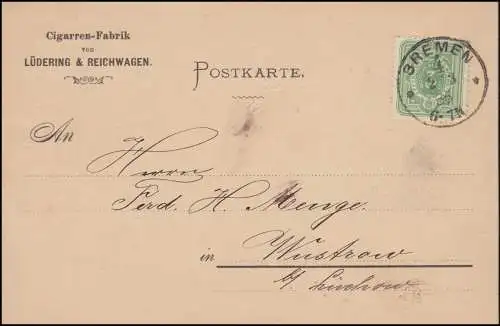 Cigarren-Fabrik
von
LÜDERING & REICHWAGEN.
POSTKARTE.
BREMEN
6-7N
An
Herrn
Ferd. H. Menge.
in Wustrow
b/ Lüchow